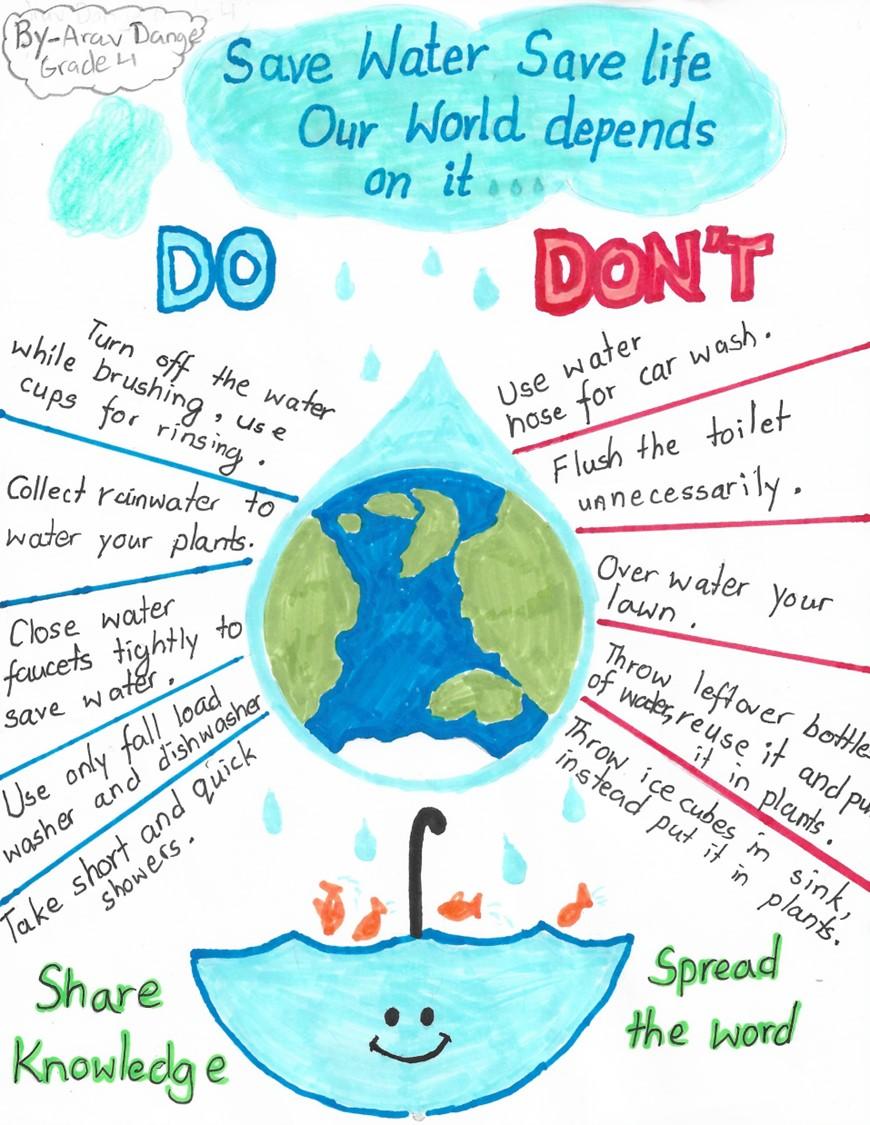 By-Arav Dange
Grade 4
Save Water Save life
Our World depends
on it ...
DO
DON'T
Turn off the water
while brushing, use
cups for rinsing.
Collect rainwater to
water your plants.
Close water
faucets tightly to
save water.
Use only fall load
washer and dishwasher
Take short and quick
showers.
Use water
hose for car wash.
Flush the toilet
unnecessarily.
Over water your
lawn.
Throw leftover bottle
of water, reuse it and pu
it in plants.
Throw ice cubes in sink,
instead put it in plants.
Share
Knowledge
Spread
the word